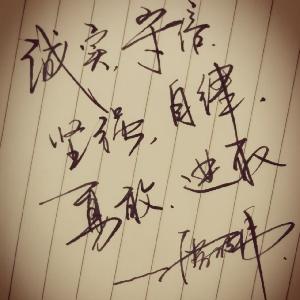 诚实、守信、
坚强、自律、
勇敢、进取